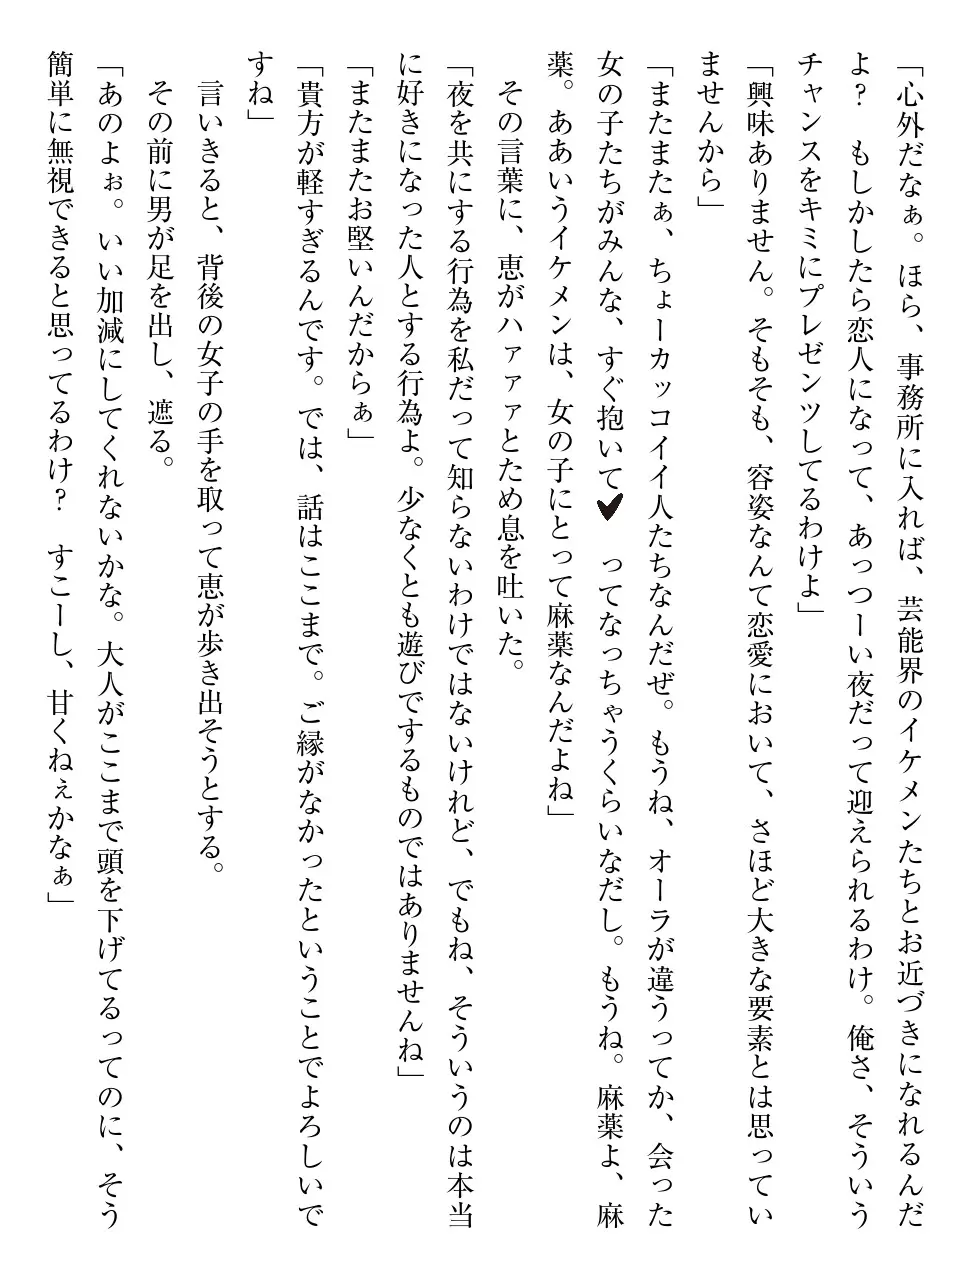 「心外だなぁ。ほら、事務所に入れば、芸能界のイケメンたちとお近づきになれるんだ
よ？　もしかしたら恋人になって、あっつーい夜だって迎えられるわけ。俺さ、そういう
チャンスをキミにプレゼンツしてるわけよ」
「興味ありません。そもそも、容姿なんて恋愛において、さほど大きな要素とは思ってい
ませんから」
「またまたぁ、ちょーカッコイイ人たちなんだぜ。もうね、オーラが違うってか、会った
女の子たちがみんな、すぐ抱いて♥　ってなっちゃうくらいなだし。もうね。麻薬よ、麻
薬。ああいうイケメンは、女の子にとって麻薬なんだよね」
　その言葉に、恵がハァァァとため息を吐いた。
「夜を共にする行為を私だって知らないわけではないけれど、でもね、そういうのは本当
に好きになった人とする行為よ。少なくとも遊びでするものではありませんね」
「またまたお堅いんだからぁ」
「貴方が軽すぎるんです。では、話はここまで。ご縁がなかったということでよろしいで
すね」
　言いきると、背後の女子の手を取って恵が歩き出そうとする。
　その前に男が足を出し、遮る。
「あのよぉ。いい加減にしてくれないかな。大人がここまで頭を下げてるってのに、そう
簡単に無視できると思ってるわけ？　すこーし、甘くねぇかなぁ」